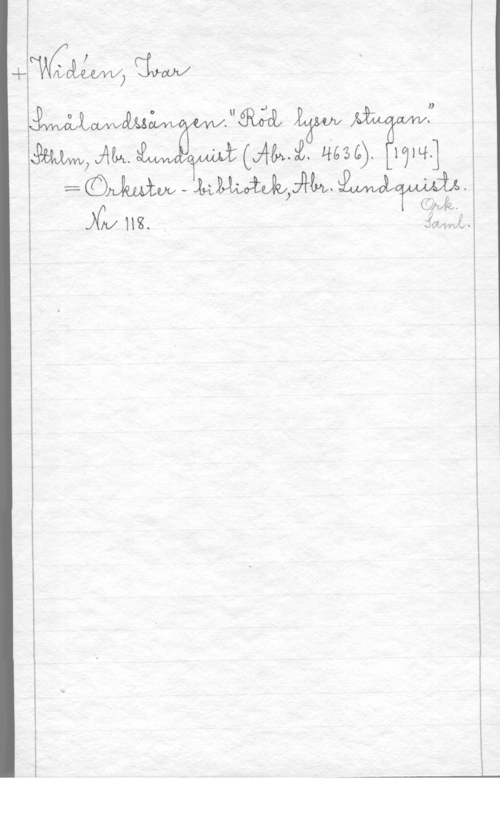 + Widéen, Ivar
Smålandssången. "Röd lyser stugan."
Sthlm, Abr. Lundquist (Abr. L. 4636). [1914.]
= Orkester-bibliotek, Abr. Lundquists.
Ork.
Nr 118.
Saml.